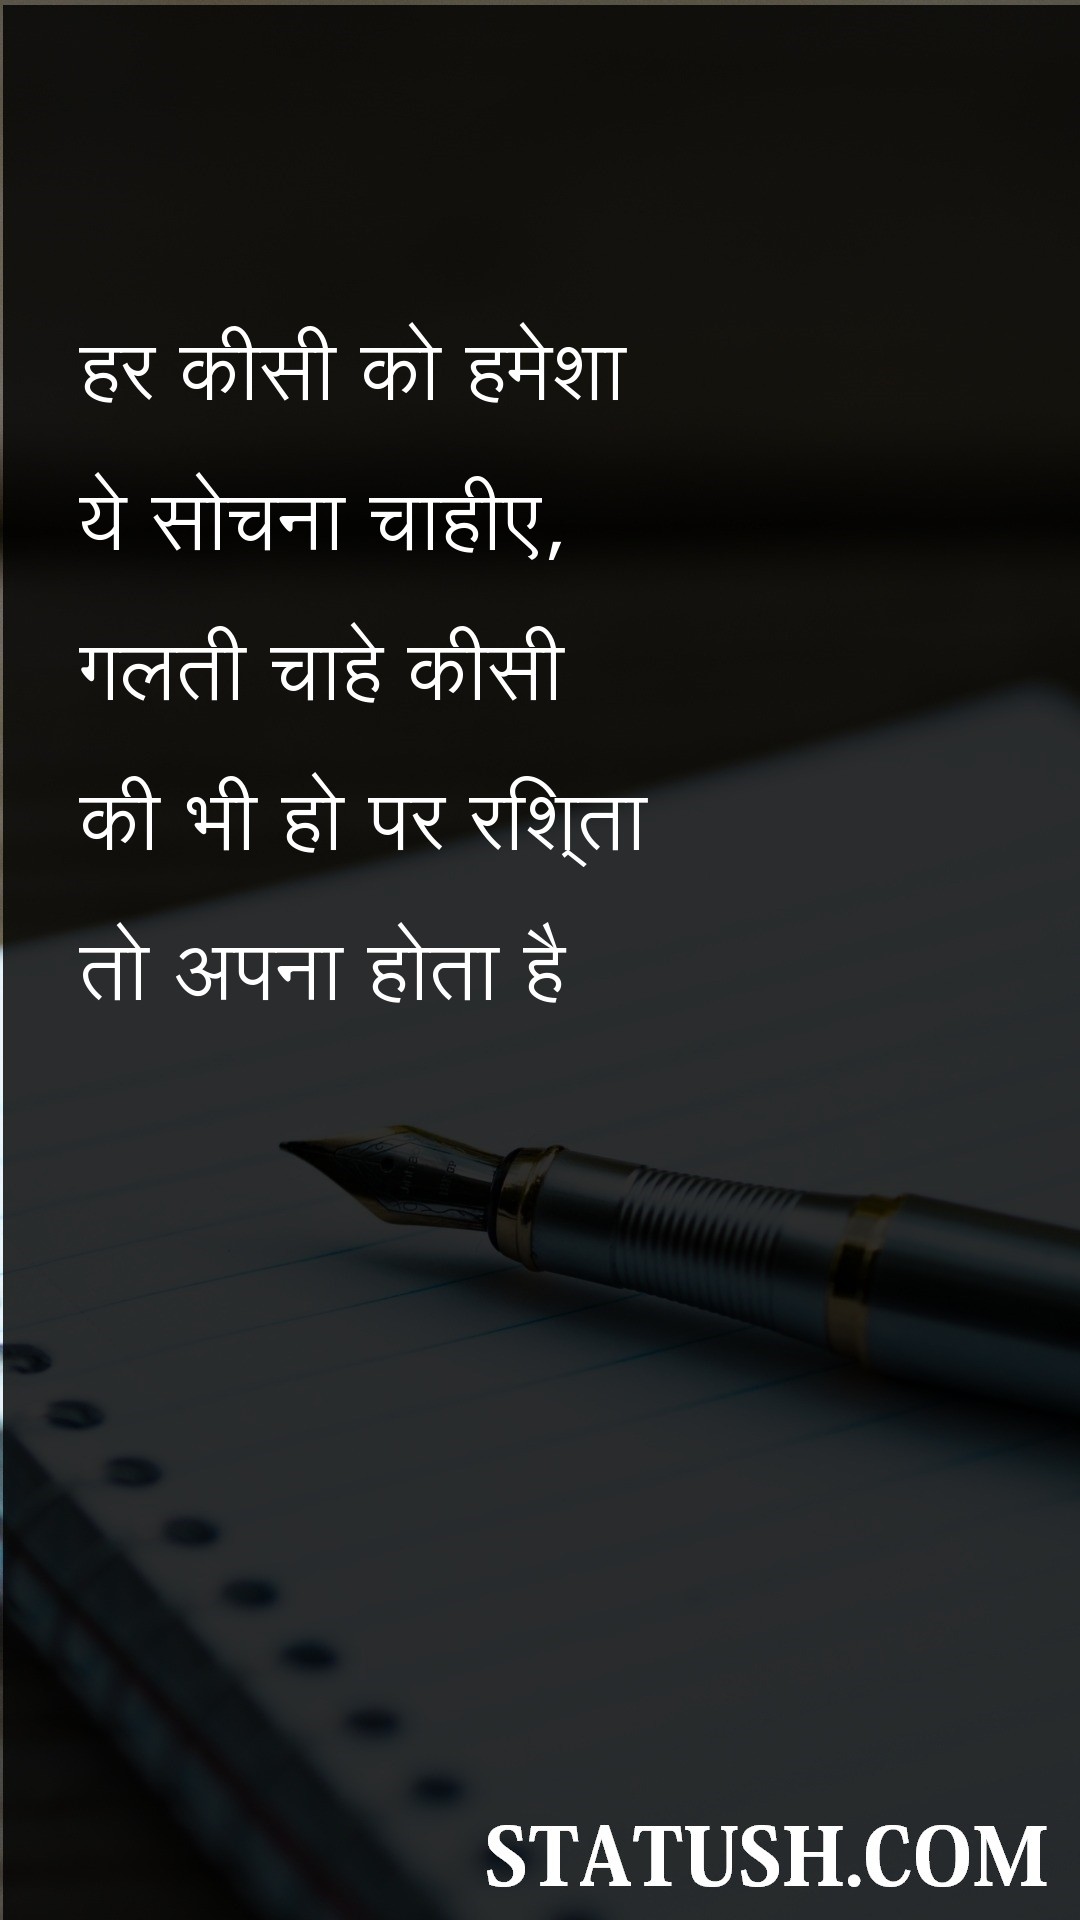 हर कीसी को हमेशा
ये सोचना चाहीए,
गलती चाहे कीसी
की भी हो पर रशि्ता
तो अपना होता है
STATUSH.COM